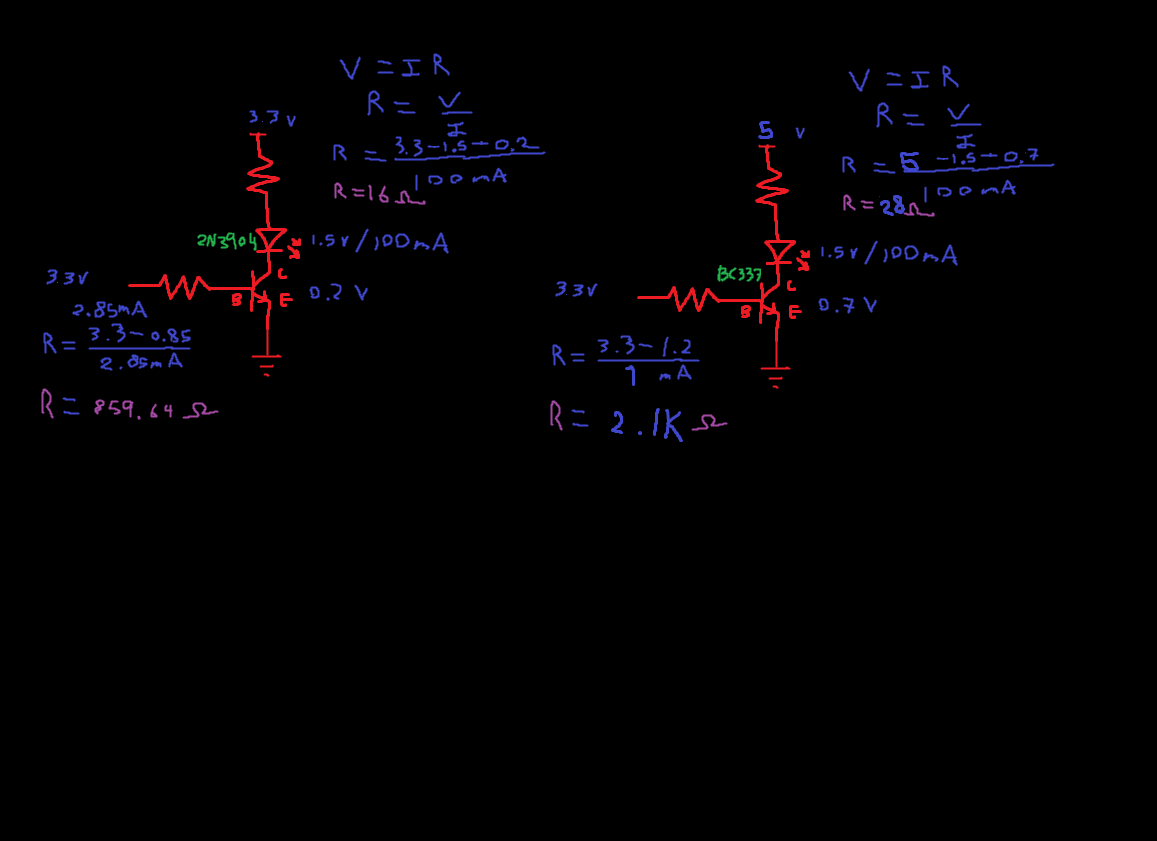 V = I R
R = V / I
3.3 V
R = 3.3 - 1.5 - 0.2 / 100mA
R = 16 Ω
2N3904
1.5v / 100mA
C
3.3V
B
E
0.2 V
2.85mA
R = 3.3 - 0.85 / 2.85mA
R = 859.64 Ω
V = I R
R = V / I
5 V
R = 5 - 1.5 - 0.7 / 100mA
R = 28Ω
1.5v / 100mA
BC337
C
3.3V
B
E
0.7 V
R = 3.3 - 1.2 / 1 mA
R = 2.1K Ω